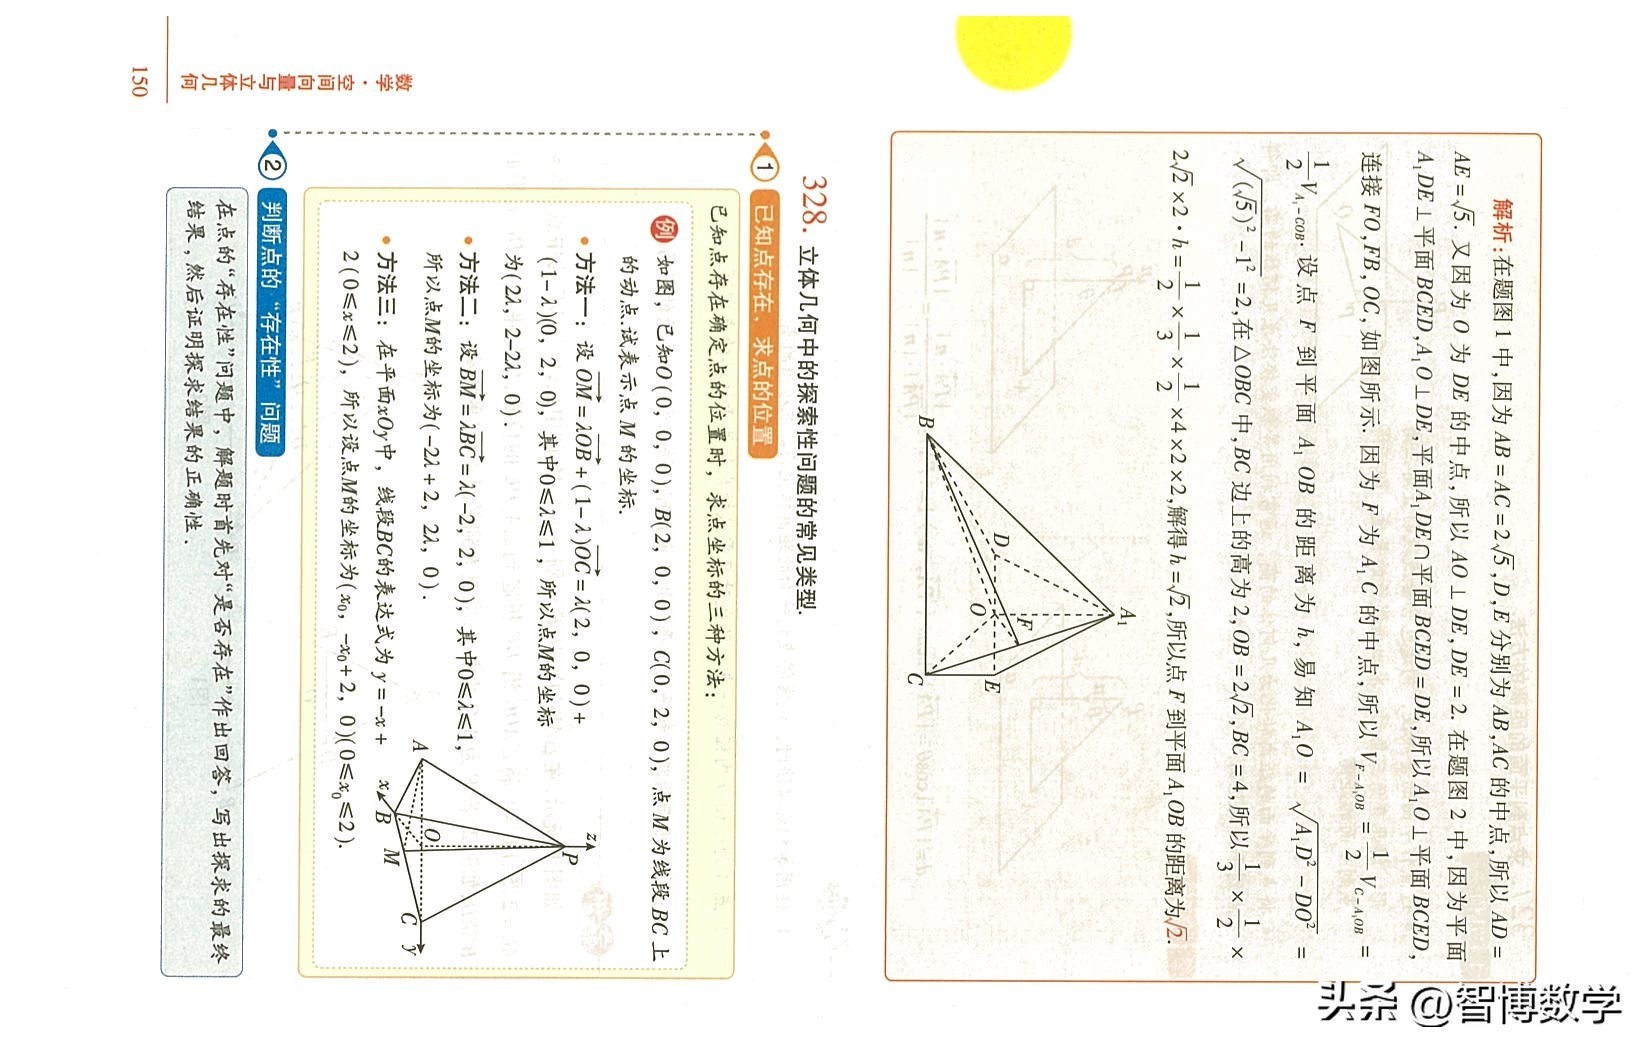 解析:在题图1中,因为AB=AC=2√5,D,E分别为AB,AC的中点,所以AD=
AE=√5. 又因为O为DE的中点,所以AO⊥DE,DE=2. 在题图2中,因为平面
A₁DE⊥平面BCED,A₁O⊥DE,平面A₁DE∩平面BCED=DE,所以A₁O⊥平面BCED,
连接FO,FB,OC,如图所示. 因为F为A₁C的中点,所以V_{F-A₁OB}=\frac{1}{2}V_{C-A₁OB}=
\frac{1}{2}V_{A₁-COB}. 设点F到平面A₁OB的距离为h,易知A₁O=√(A₁D²-DO²)=
√((√5)²-1²)=2,在△OBC中,BC边上的高为2,OB=2√2,BC=4,所以\frac{1}{3}×\frac{1}{2}×
2√2×2·h=\frac{1}{2}×\frac{1}{3}×\frac{1}{2}×4×2×2,解得h=√2,所以点F到平面A₁OB的距离为√2.
A₁
B
D
O
F
C
E
328. 立体几何中的探索性问题的常见类型.
1 已知点存在,求点的位置
已知点存在确定点的位置时,求点坐标的三种方法:
例 如图,已知O(0,0,0),B(2,0,0),C(0,2,0),点M为线段BC上
的动点.试表示点M的坐标.
• 方法一:设\overrightarrow{OM}=λ\overrightarrow{OB}+(1-λ)\overrightarrow{OC}=λ(2,0,0)+
(1-λ)(0,2,0),其中0≤λ≤1,所以点M的坐标
为(2λ,2-2λ,0).
• 方法二:设\overrightarrow{BM}=λ\overrightarrow{BC}=λ(-2,2,0),其中0≤λ≤1,
所以点M的坐标为(-2λ+2,2λ,0).
• 方法三:在平面xOy中,线段BC的表达式为y=-x+
2(0≤x≤2),所以设点M的坐标为(x₀,-x₀+2,0)(0≤x₀≤2).
z
P
A
O
C
y
x
B
M
2 判断点的“存在性”问题
在点的“存在性”问题中,解题时首先对“是否存在”作出回答,写出探求的最终
结果,然后证明探求结果的正确性.
数学·空间向量与立体几何
150
头条 @智博数学